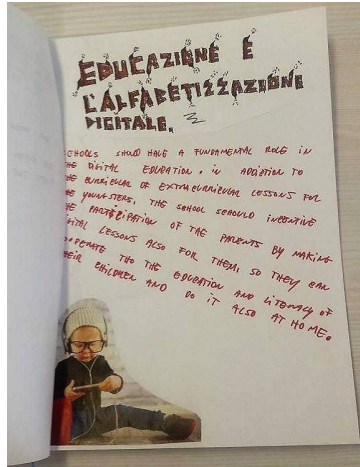 EDUCAZIONE E
L'ALFABETIZZAZIONE
DIGITALE.
SCHOOLS SHOULD HAVE A FUNDAMENTAL ROLE IN
THE DIGITAL EDUCATION. IN ADDICTION TO
THE CURRICULAR OF EXTRACURRICULAR LESSONS FOR
THE YOUNGSTERS, THE SCHOOL SCHOULD INCENTIVE
THE PARTECIPATION OF THE PARENTS BY MAKING
DIGITAL LESSONS ALSO FOR THEM, SO THEY CAN
COOPERATE THO THE EDUCATION AND LITERACY OF
THEIR CHILDREN AND DO IT ALSO AT HOME.